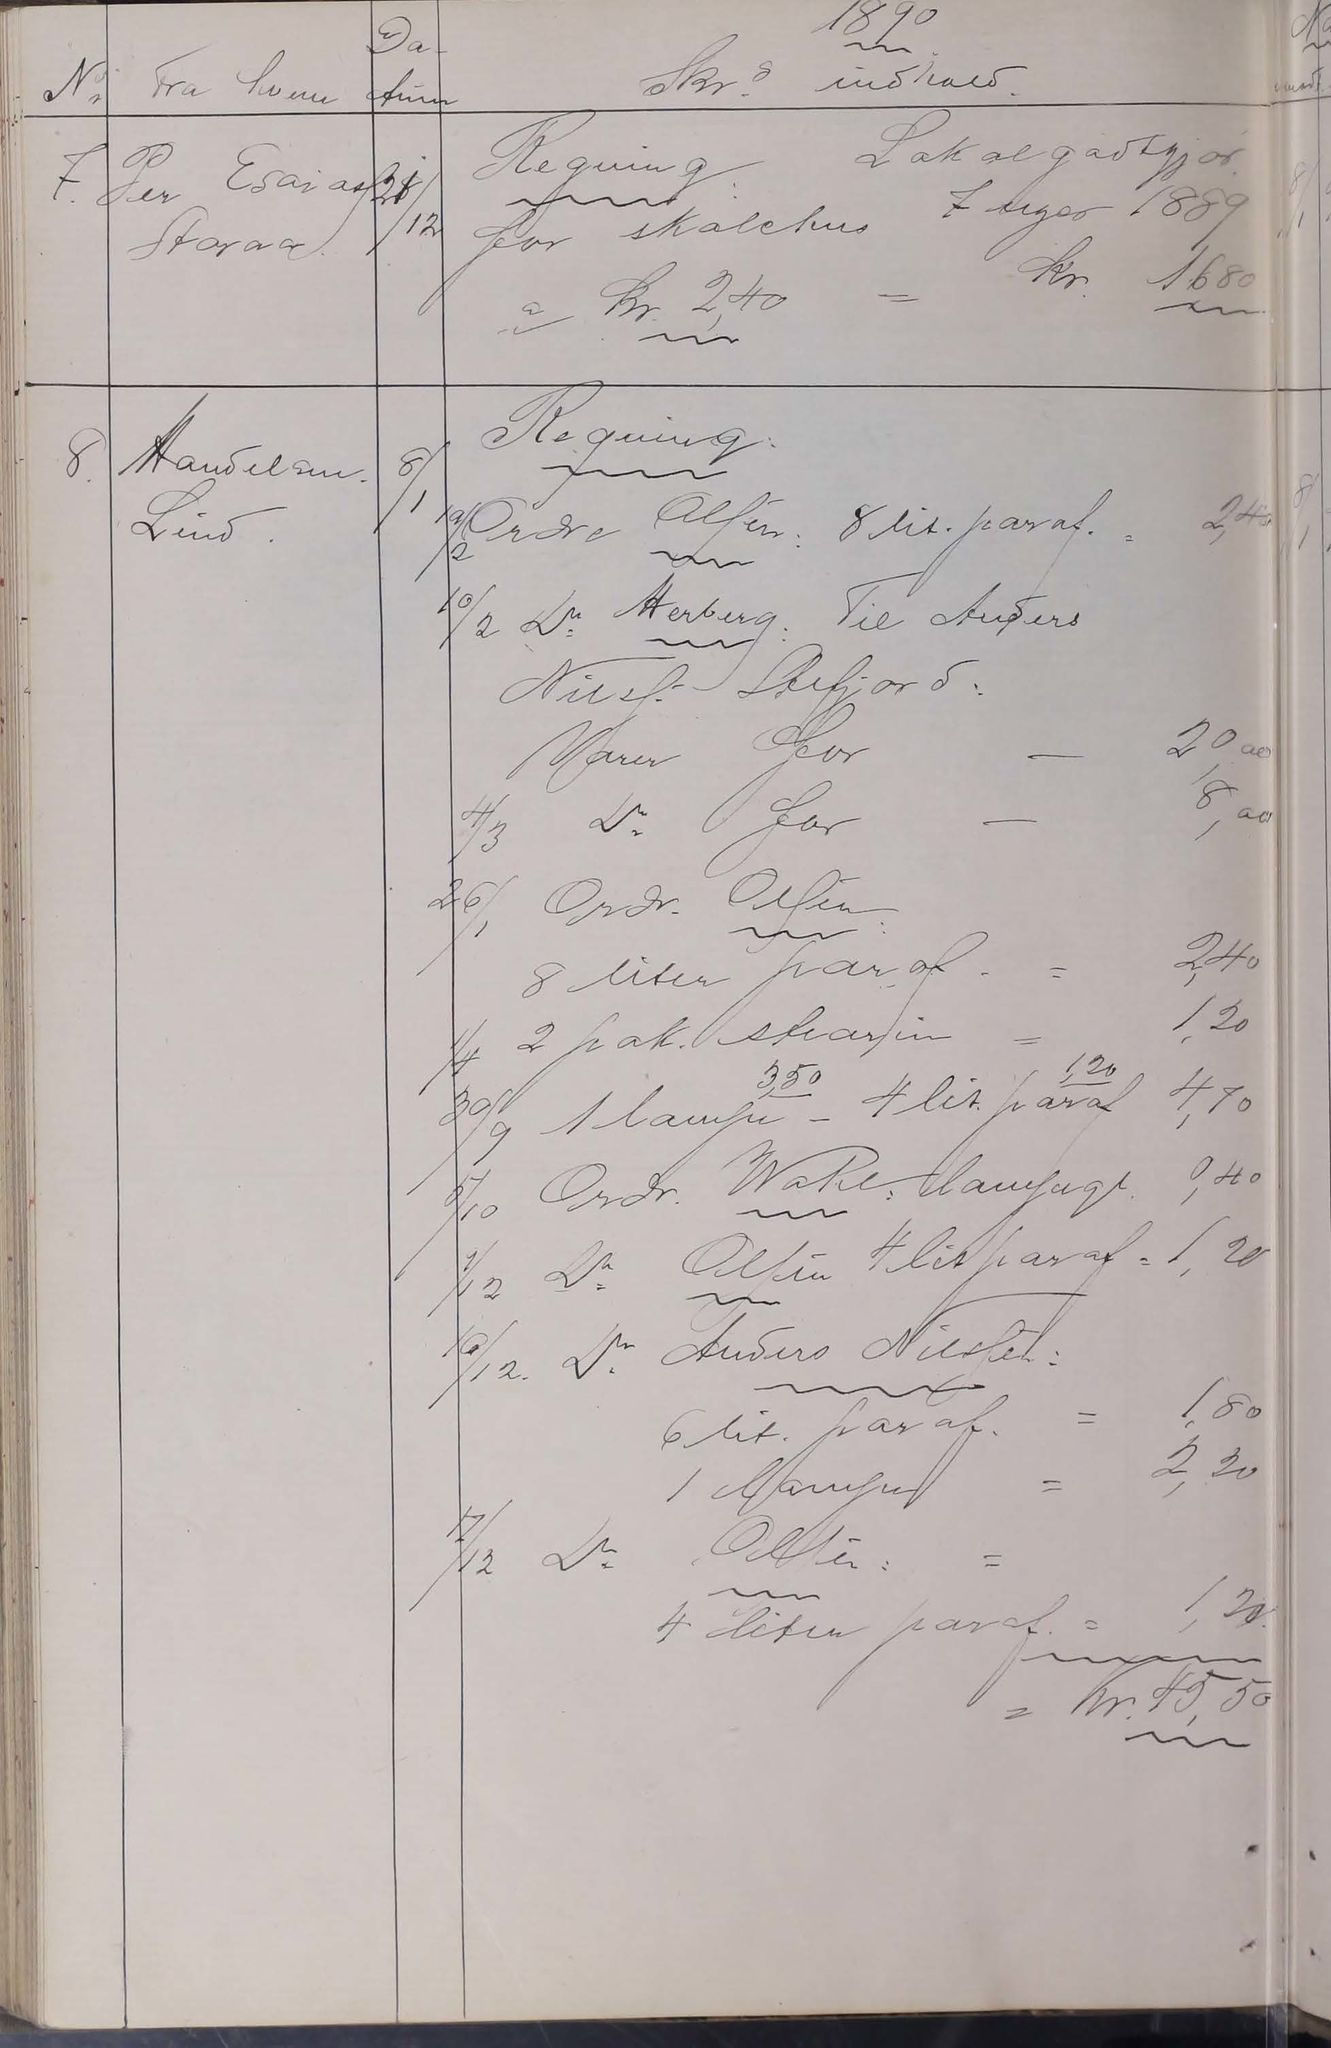 1890
No. Fra hvem Da-
tum Skr.s indhold.
7. Per Esaias 21/12 Regning. Lokalgodtgjør.
Storaa. for skolehus 7 uger 1889
a kr. 2,40 = kr. 1680
8. Handelsm. 8/1 Regning.
Lind. 19/2 Ordre Olsen: 8 lit. paraf. = 2,40
10/2 Do Herberg: Til Anders
Niels. Stefjord:
Varer for — 20,00
4/3 Do for — 18,00
26/1 Ordr. Olsen:
8 liter paraf. = 2,40
1/4 2 pak. stearin = 1,20
3,50 1,20
30/9 1 lampe – 4 lit. paraf 4,70
5/10 Ordr. Wakl: lampegl. 0,40
9/12 Do Olsen 4 lit paraf = 1,20
10/12. Do Anders Nielsen:
6 lit. paraf. = 1,80
1 Lampe = 2,20
17/12 Do Olsen: =
4 liter paraf. = 1,20.
= Kr. 45,50